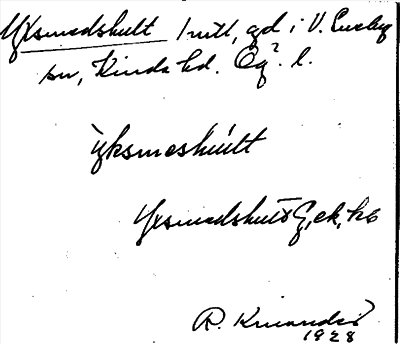 Yxsmedshult 1 mtl, gd i V. Eneby
sn, Kinda hd. Ög. l.
ỳksmeshúlt
Yxsmedshult G, ek, kb
R. Kinander
1928